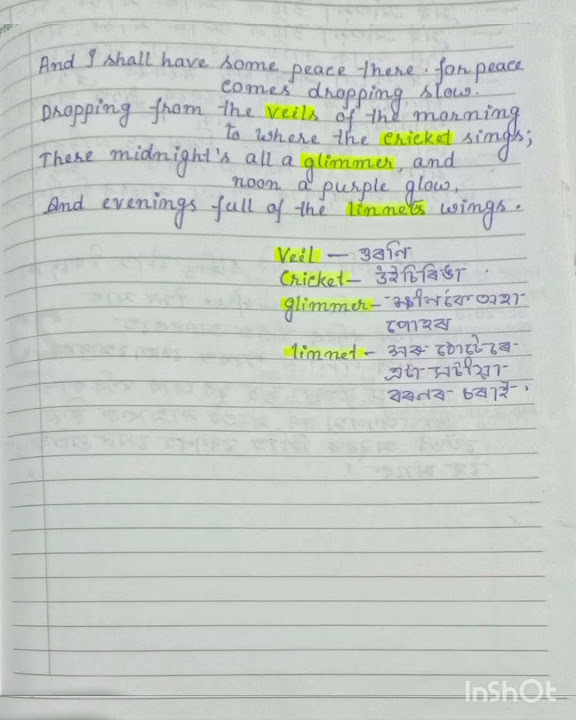 And I shall have some peace there. for peace
comes dropping slow.
Dropping from the veils of the morning
to where the cricket sings;
There midnight's all a glimmer, and
noon a purple glow,
And evenings full of the linnets wings.
Veil — ওৰণি
Cricket — উইচিৰিঙা
glimmer - ক্ষীণকৈ অহা
পোহৰ
linnet - সৰু ঠোঁটেৰে
এটা মটীয়া
বৰণৰ চৰাই.
InShOt